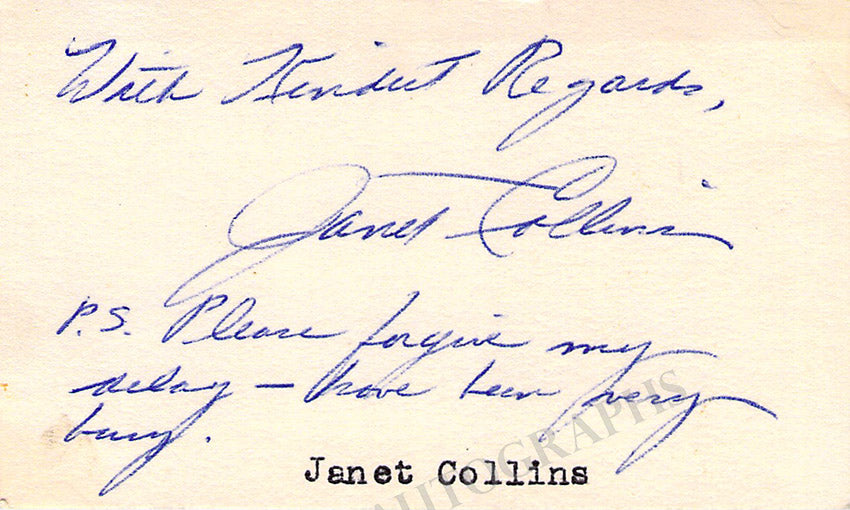 With Kindest Regards,
Janet Collins
P.S. Please forgive my
delay — have been very
busy.
Janet Collins
AUTOGRAPHS